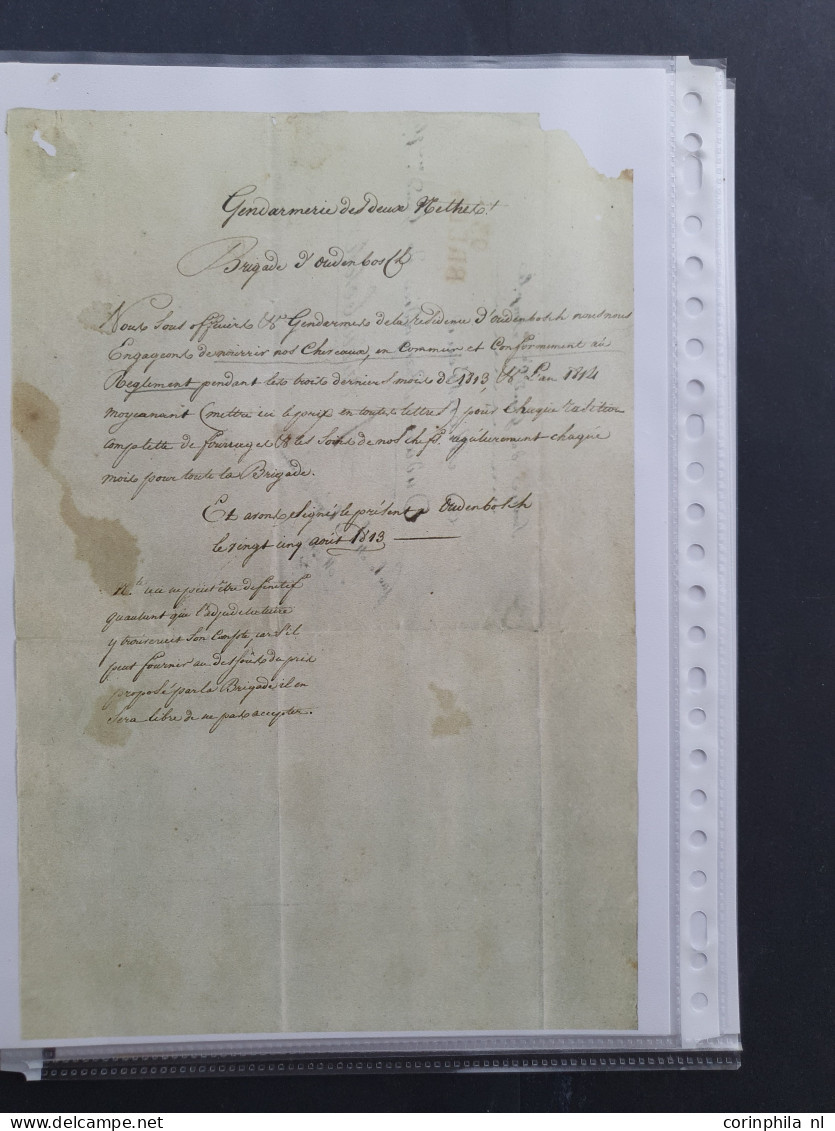 Gendarmerie des deux Nethes.
Brigade d'oudenbosch
Nous Sous officiers & Gendermes de la residence d'oudenbosch nous nous
Engageons de nourrir nos Chevaux, en Commun et Conformement au
Reglement pendant les trois derniers mois de 1813, & l'an 1814
moyennant (mettre ici le prix en toutes lettres) pour chaque
complette de fourrages & les de nos régulierement chaque
mois pour toute la Brigade.
Et avons Signé le présent a oudenbosch
le vingt cinq août 1813
ne peut être definitif
qu'autant que
y trouverait Son Compte, car S'il
peut fournir au dessous du prix
proposé par la Brigade il en
Sera libre de ne pas accepter.
corinphila nl